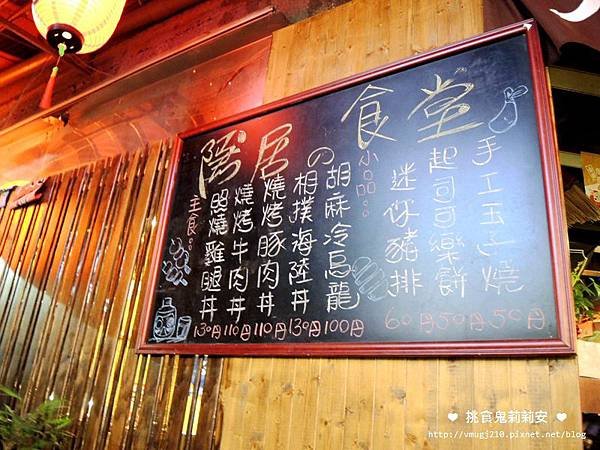 隱居の食堂
主食。。
照燒雞腿丼 130円
燒烤牛肉丼 110円
燒烤豚肉丼 110円
相撲海陸丼 130円
胡麻冷烏龍 100円
小品。。
迷你豬排 60円
起司可樂餅 50円
手工玉子燒 50円
❤ 挑食鬼莉莉安 ❤
http://vmugj210.pixnet.net/blog